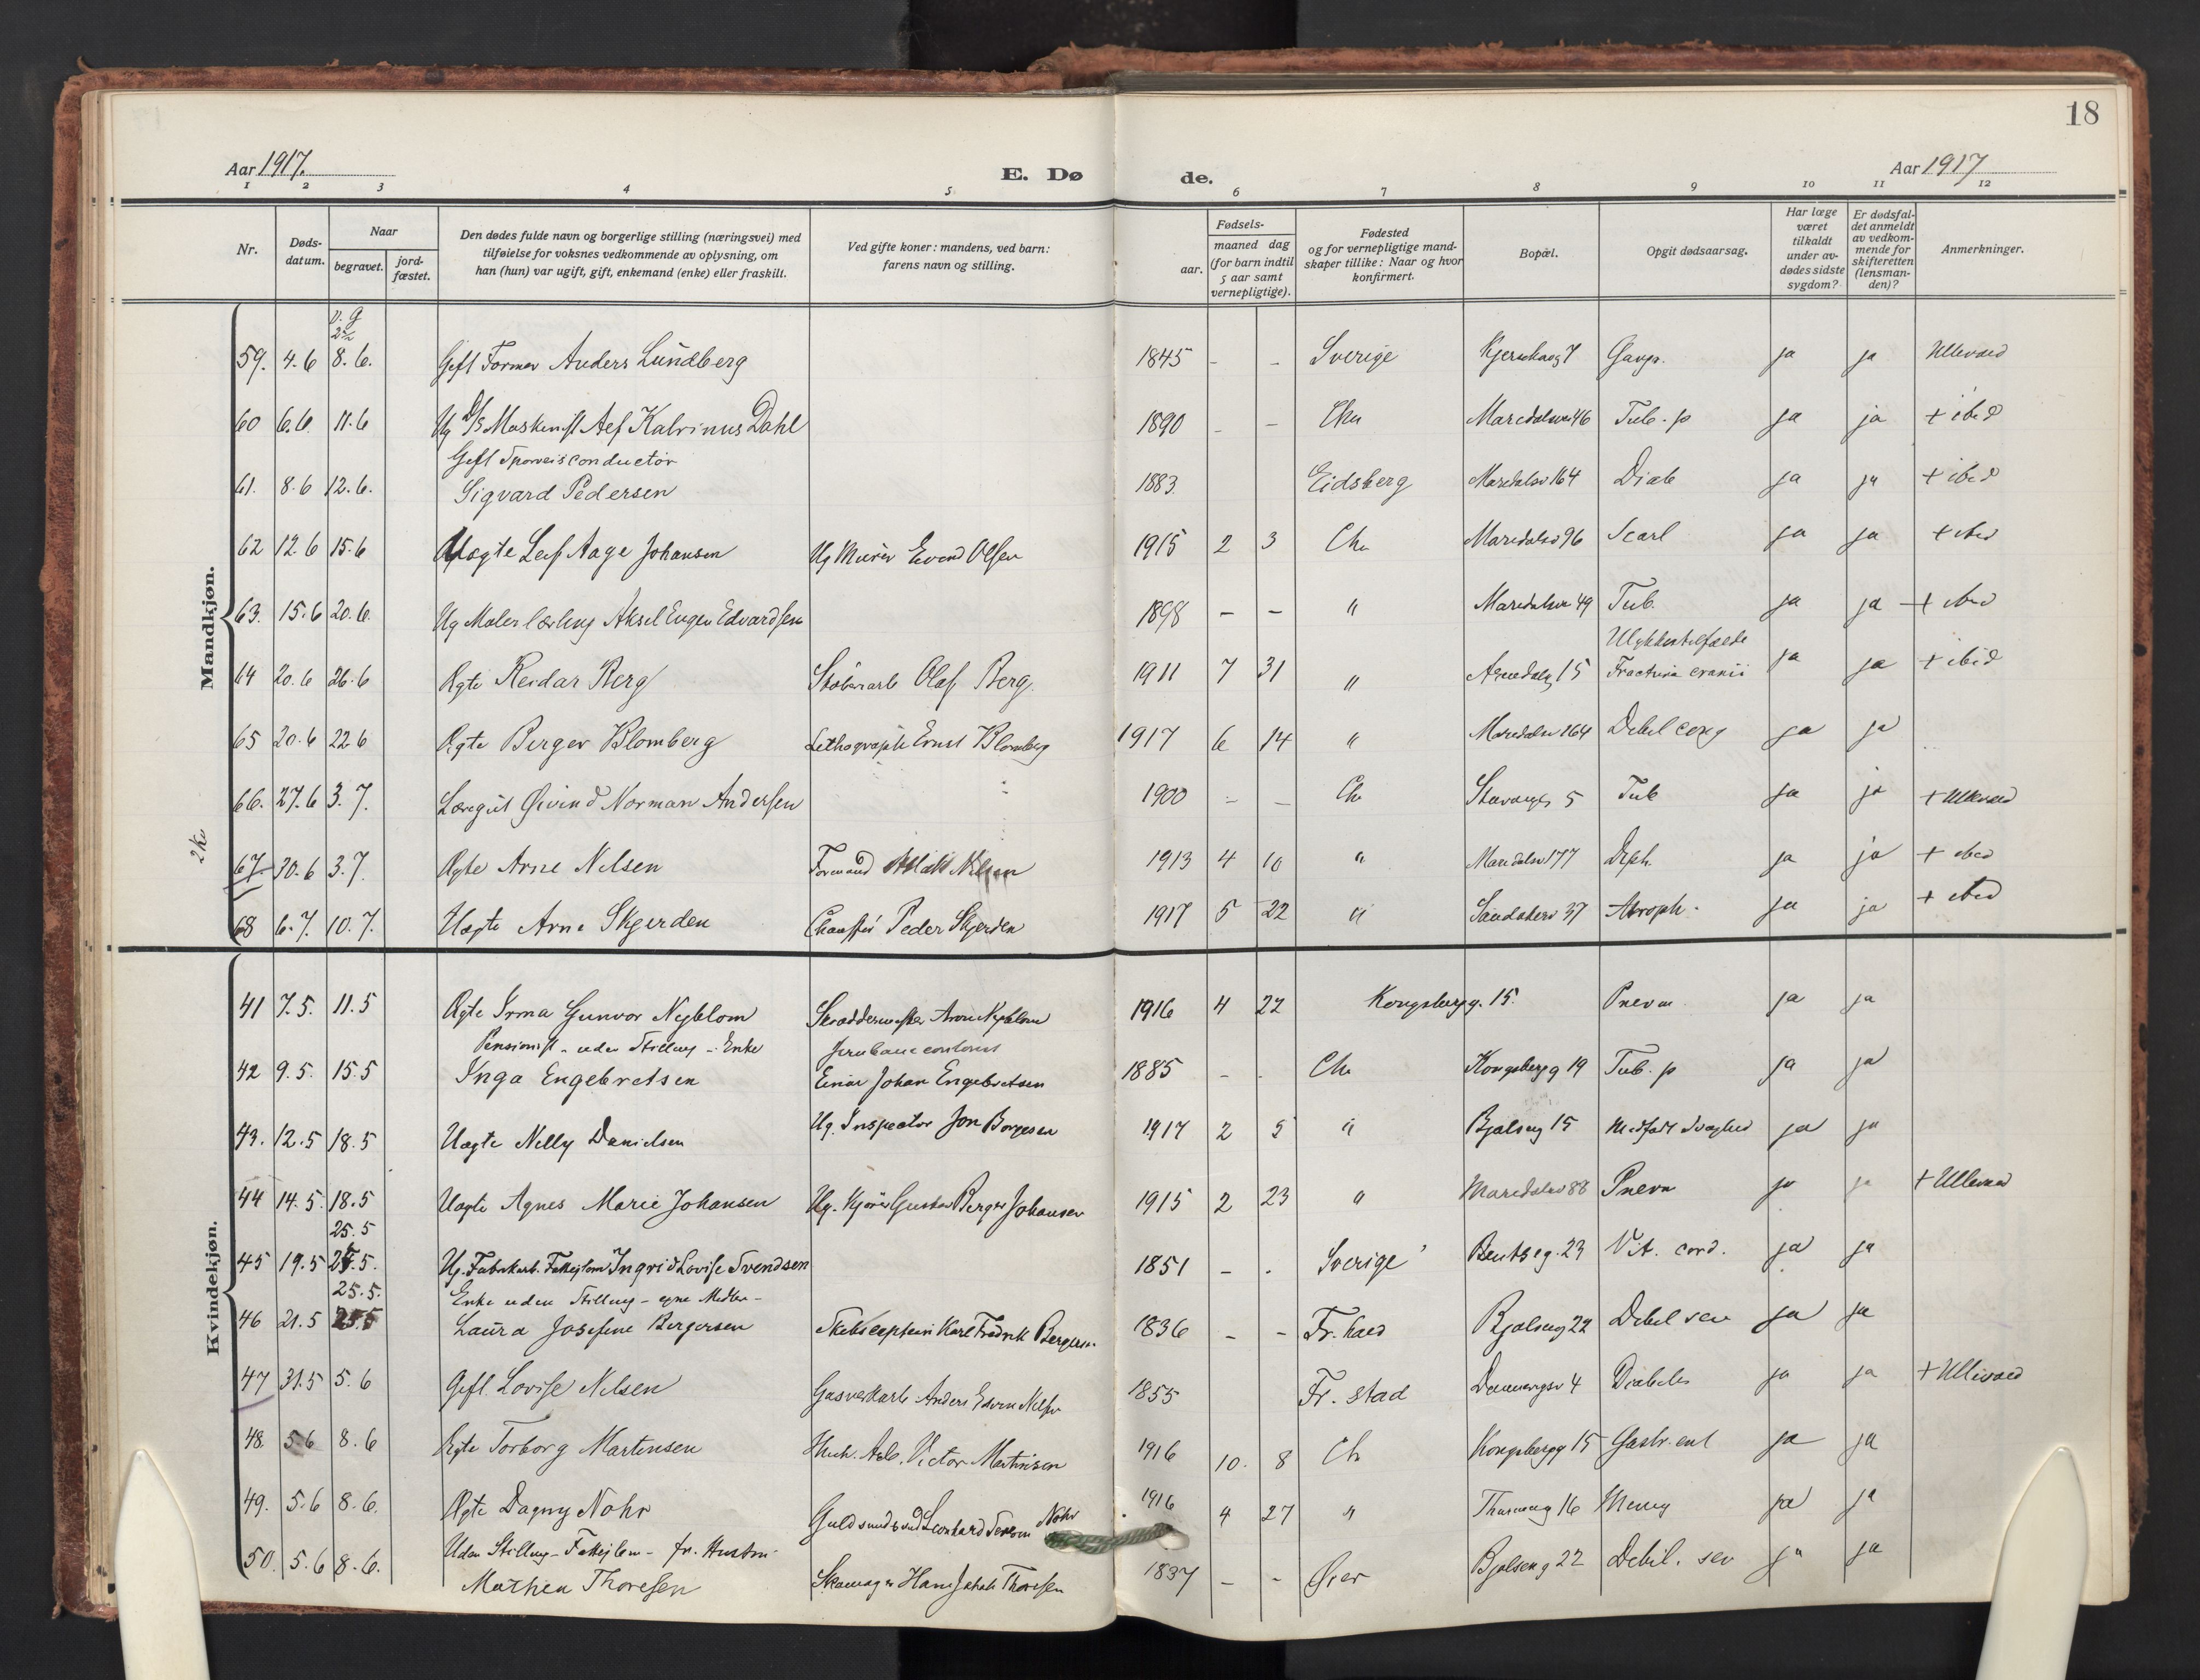 18
Aar 1917. E. Dø de. Aar 1917
1 2 3 4 5 6 7 8 9 10 11 12
Nr.
Døds-
datum.
Naar
begravet.
jord-
fæstet.
Den dødes fulde navn og borgerlige stilling (næringsvei) med
tilføielse for voksnes vedkommende av oplysning, om
han (hun) var ugift, gift, enkemand (enke) eller fraskilt.
Ved gifte koner: mandens, ved barn:
farens navn og stilling.
Fødsels-
aar.
maaned dag
(for barn indtil
5 aar samt
vernepligtige).
Fødested
og for vernepligtige mand-
skaper tillike: Naar og hvor
konfirmert.
Bopæl.
Opgit dødsaarsag.
Har læge
været
tilkaldt
under av-
dødes sidste
sygdom?
Er dødsfal-
det anmeldt
av vedkom-
mende for
skifteretten
(lensman-
den)?
Anmerkninger.
Mandkjøn.
59. 4.6 8.6. Gift Former Anders Lundberg 1845 - - Sverige 7 ja ja Ullevaal
60 6.6. 11.6 Ug D/S Maskinist Dahl 1890 - - Chr Maridalsv 46 Tub. p ja ja + ibid
Gift Sporveisconductør
61. 8.6 12.6. Sigvard Pedersen 1883 Eidsberg Maridalsv 164 Diab ja ja + ibid
62 12.6 15.6 Uægte Leif Aage Johansen Ug Murer Olsen 1915 2 3 Chr Maridalsv 96 Scarl ja ja + ibid
63. 15.6 20.6. Ug Malerlærling Aksel Eugen Edvardsen 1898 - - " Maridalsv 49 Tub. ja ja + ibid
64 20.6 26.6 Ægte Reidar Berg Olaf Berg. 1911 7 31 " 15 Ulykkestilfælde
Fractura cranii ja ja + ibid
65 20.6 22.6 Ægte Birger Blomberg Lithograph Ernst Blomberg 1917 6 14 " Maridalsv 164 Debil cong ja ja
66. 27.6 3.7. Læregut Øivind Norman Andersen 1900 - - Chr 5 Tub ja ja + Ullevaal
2 Kv
67. 30.6 3.7. Ægte Arne Nilsen Formand Nilsen 1913 4 10 " Maridalsv 177 Diph. ja ja + ibid
68 6.7. 10.7. Uægte Arne Skjerden Chauffør Peder Skjerden 1917 5 22 " Sandakerv 37 Atroph. ja ja + ibid
Kvindekjøn.
41 7.5. 11.5 Ægte Irma Gunvor Nyblom Skræddermester Nyblom 1916 4 22 Kongsbergg. 15. Pnevm ja ja
Pensionist - uden Stilling - Enke
42 9.5. 15.5 Inga Engebretsen Einar Johan Engebretsen 1885 - - Chr Kongsbergg 19 Tub. p ja ja
43. 12.5 18.5 Uægte Nelly Danielsen Ug. Inspector Jon Borgesen 1917 2 5 " Bjølseng 15 Medfødt Svaghed ja ja
44 14.5. 18.5 Uægte Agnes Marie Johansen Ug. Kjører Gustav Birger Johansen 1915 2 23 " Maridalsv 88 Pnevm ja ja + Ullevaal
25.5
45 19.5 Ug. Fabrikarb. Fattiglem Ingrid Lovise Svendsen 1851 - - Sverige Bentseg. 23 Vit. cord. ja ja
25.5. Enke uden Stilling - egne Midler -
46 21.5 25.5 Laura Josefine Bergersen Skibscaptein Karl Fredrik Bergersen 1836 - - Fr.hald Bjølseng 22 Debil sen ja ja
47 31.5 5.6 Gift. Lovise Nilsen Gasverkarb Anders Edvin Nilsen 1855 Fr. stad 4 Diabetes ja ja + Ullevaal
48. 5.6 8.6 Ægte Torborg Martinsen Arb. Victor Martinsen 1916 10. 8 Chr Kongsbergg 15 Gastr. ent ja ja
49. 5.6 8.6. Ægte Dagny Nohr Guldsmedsvend Leonhard Nohr 1916 4 27 " 16 Mening ja ja
Uden Stilling - Fattiglem - fr. Hustru
50. 5.6 8.6. Mathea Thoresen Skomager Hans Jakob Thoresen 1837 - - Øier Bjølseng 22 Debil. sen ja ja